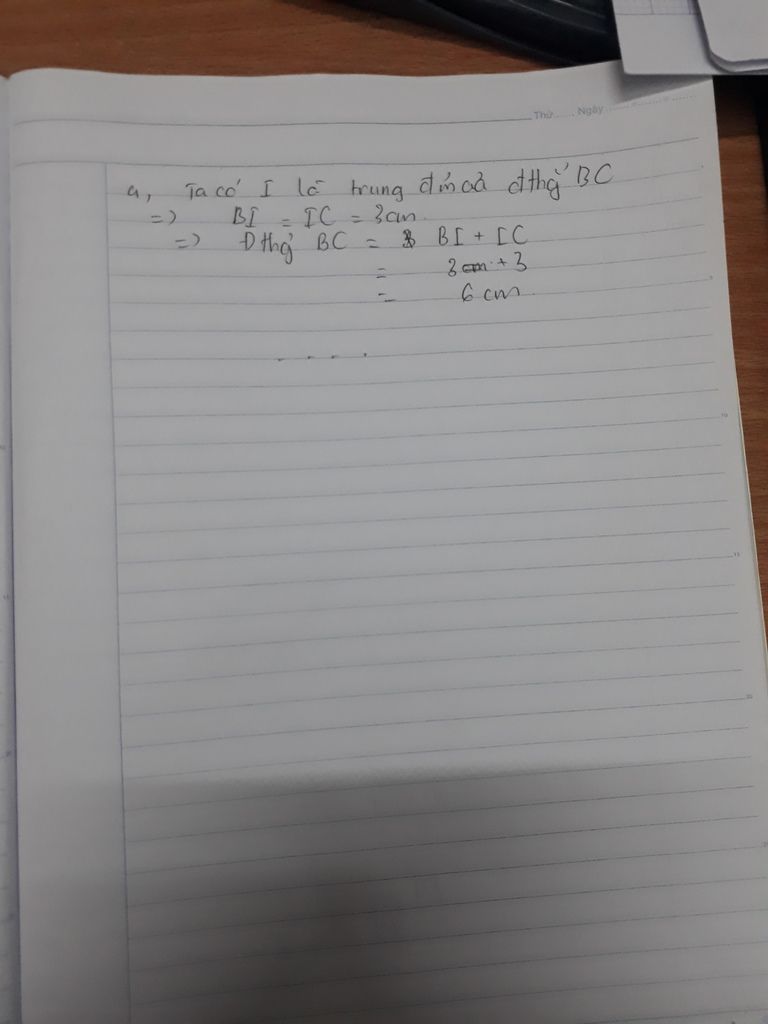 Thứ ...... Ngày ..................
a, Ta có I là trung đ'm của đthg̉ BC
=> BI = IC = 3cm
=> Đthg̉ BC = BI + IC
= 3cm + 3
= 6 cm
- - - .